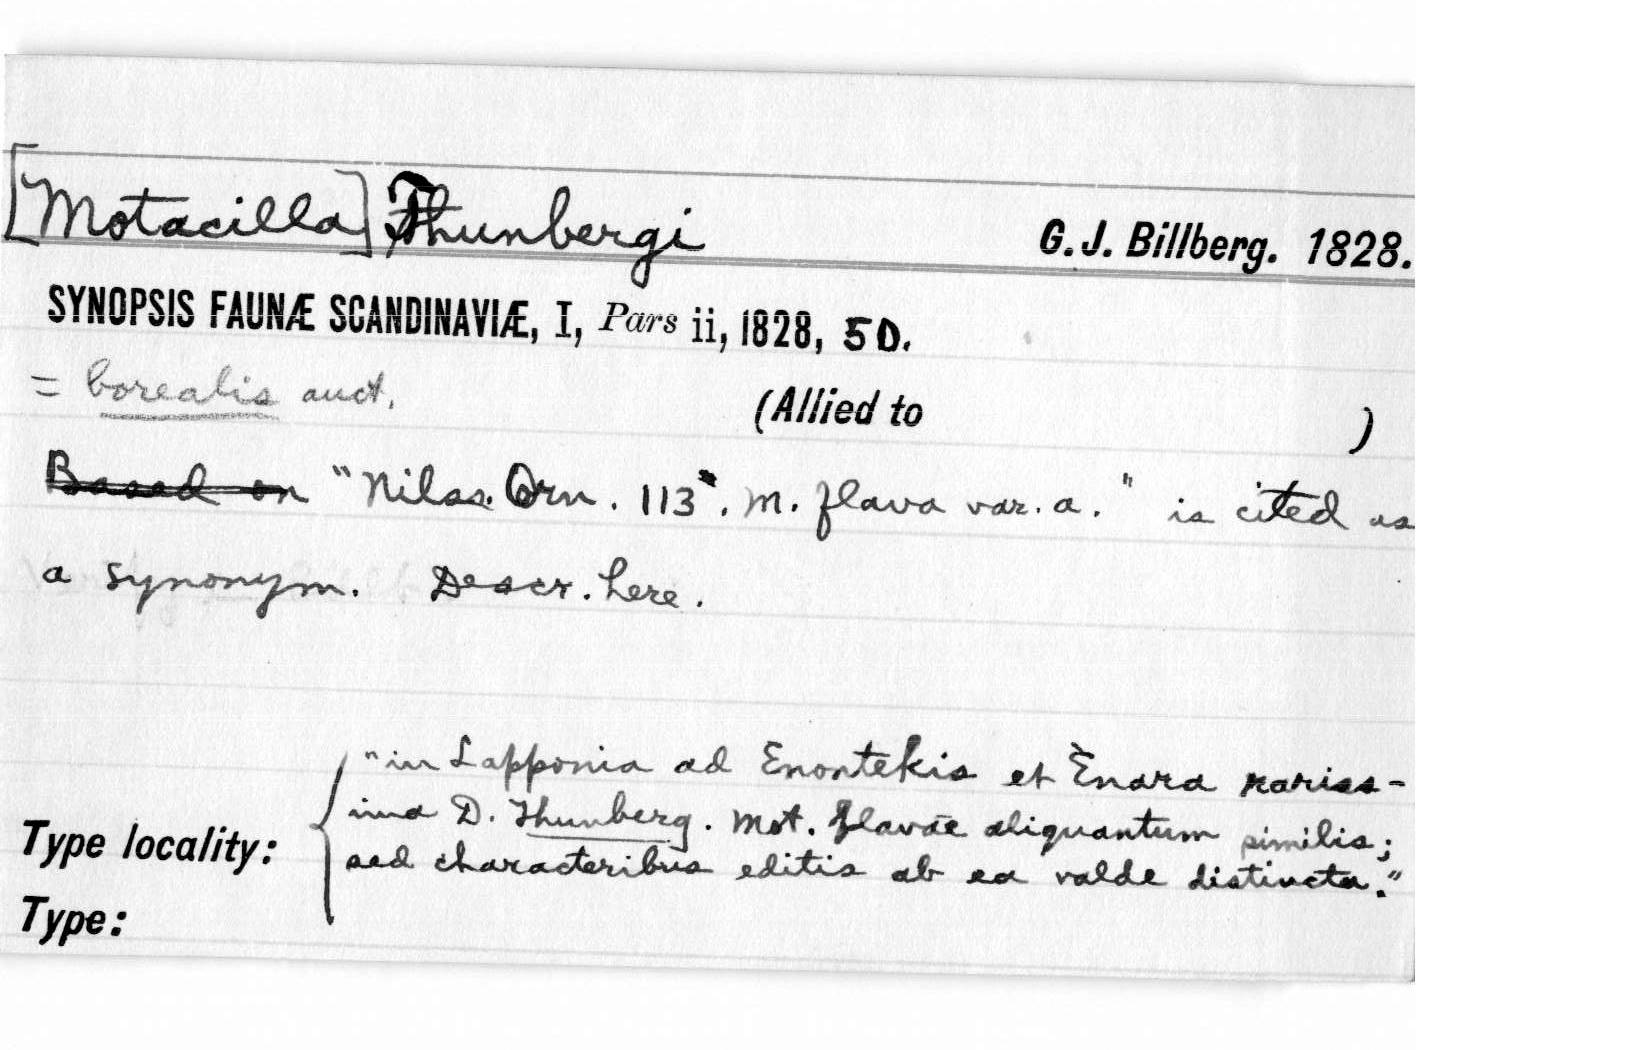 [Motacilla] Thunbergi G. J. Billberg. 1828.
SYNOPSIS FAUNÆ SCANDINAVIÆ, I, Pars ii, 1828, 50.
= borealis auct.
(Allied to )
Based on "Nilss. Orn. 113. M. flava var. a." is cited as
a synonym. Descr. here.
"in Lapponia ad Enontekis et Enara rariss-
ima D. Thunberg. Mot. flavae aliquantum similis;
Type locality: sed characteribus editis ab ea valde distincta."
Type: